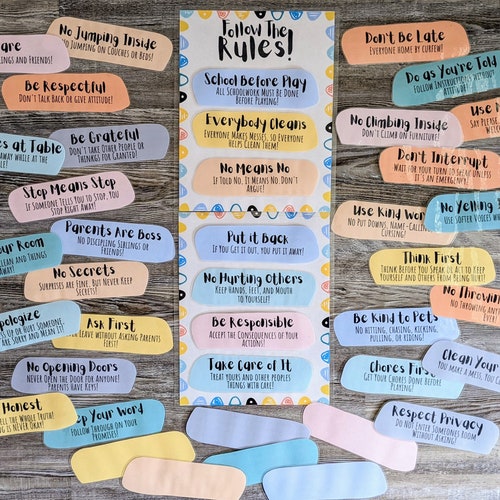 Follow The
Rules!
School Before Play
All Schoolwork Must Be Done
Before Playing!
Everybody Cleans
Everyone Makes Messes, so Everyone
helps Clean Them!
No Means No
If told No, it Means No. Don't
Argue!
Put it Back
If You Get it Out, You Put it Away!
No Hurting Others
Keep Hands, Feet, and Mouth
to Yourself!
Be Responsible
Accept the Consequences of Your
Actions!
Take Care of It
Treat Yours and Other Peoples
Things with Care!
No Jumping Inside
No Jumping on Couches or Beds!
are
lings and Friends!
Be Respectful
Don't Talk Back or Give Attitude!
es at Table
away while at the
le!
Be Grateful
Don't Take Other People or
Things for Granted!
Stop Means Stop
If Someone Tells You to Stop, You
Stop Right Away!
Parents Are Boss
No Disciplining Siblings or
Friends!
our Room
Clean and Things
Away!
No Secrets
Surprises are Fine, But Never Keep
Secrets!
pologize
Sip or Hurt Someone,
are Sorry and Mean It!
Ask First
Leave Without Asking Parents
First!
No Opening Doors
Never Open the Door for Anyone!
Parents Have Keys!
Honest
ell the Whole Truth!
ng is Never Okay!
eep Your Word
Follow Through on Your
Promises!
Don't Be Late
Everyone Home by Curfew!
Do as You're Told
Follow Instructions Without
Attitude!
No Climbing Inside
Don't Climb on Furniture!
Use
Say Please,
Don't Interrupt
Wait for Your Turn to Speak Unless
It's an Emergency!
Use Kind Wor
No Put Downs, Name-Calling,
Cursing!
No Yelling
Use Softer Voices
Think First
Think Before You Speak or Act to Keep
Yourself and Others From Being Hurt!
No Throwing
No Throwing Any
Ever!
Be Kind to Pets
No Hitting, Chasing, Kicking,
Pulling, or Riding!
Clean Your
You Make a Mess, You
Chores First
Get Your Chores Done Before
Playing!
Respect Privacy
Do Not Enter Someones Room
Without Asking!